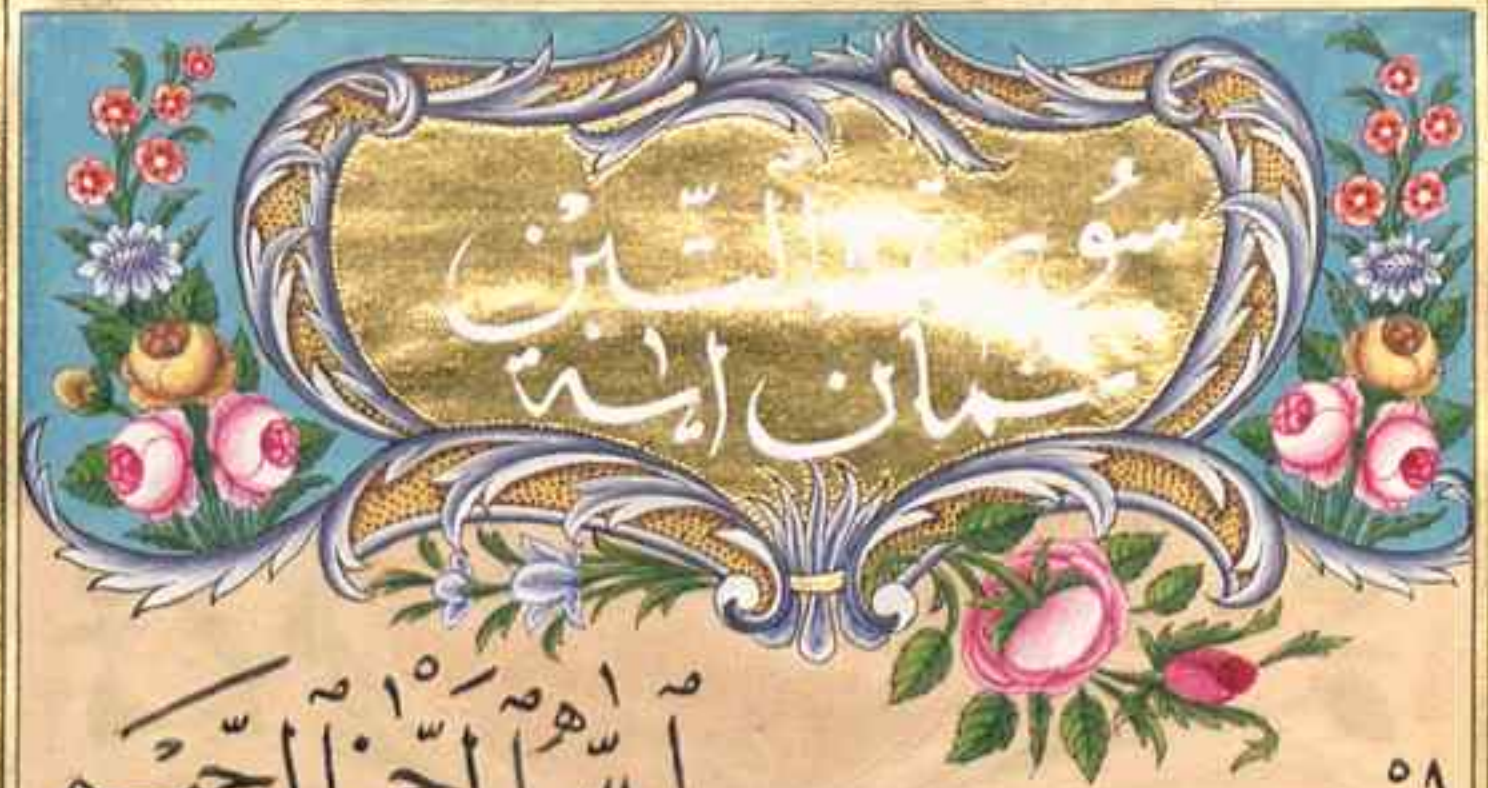 سُورة التّين
ثمان اٰية
بسم اللّٰه الرّحمٰن الرّحيم
٥٨